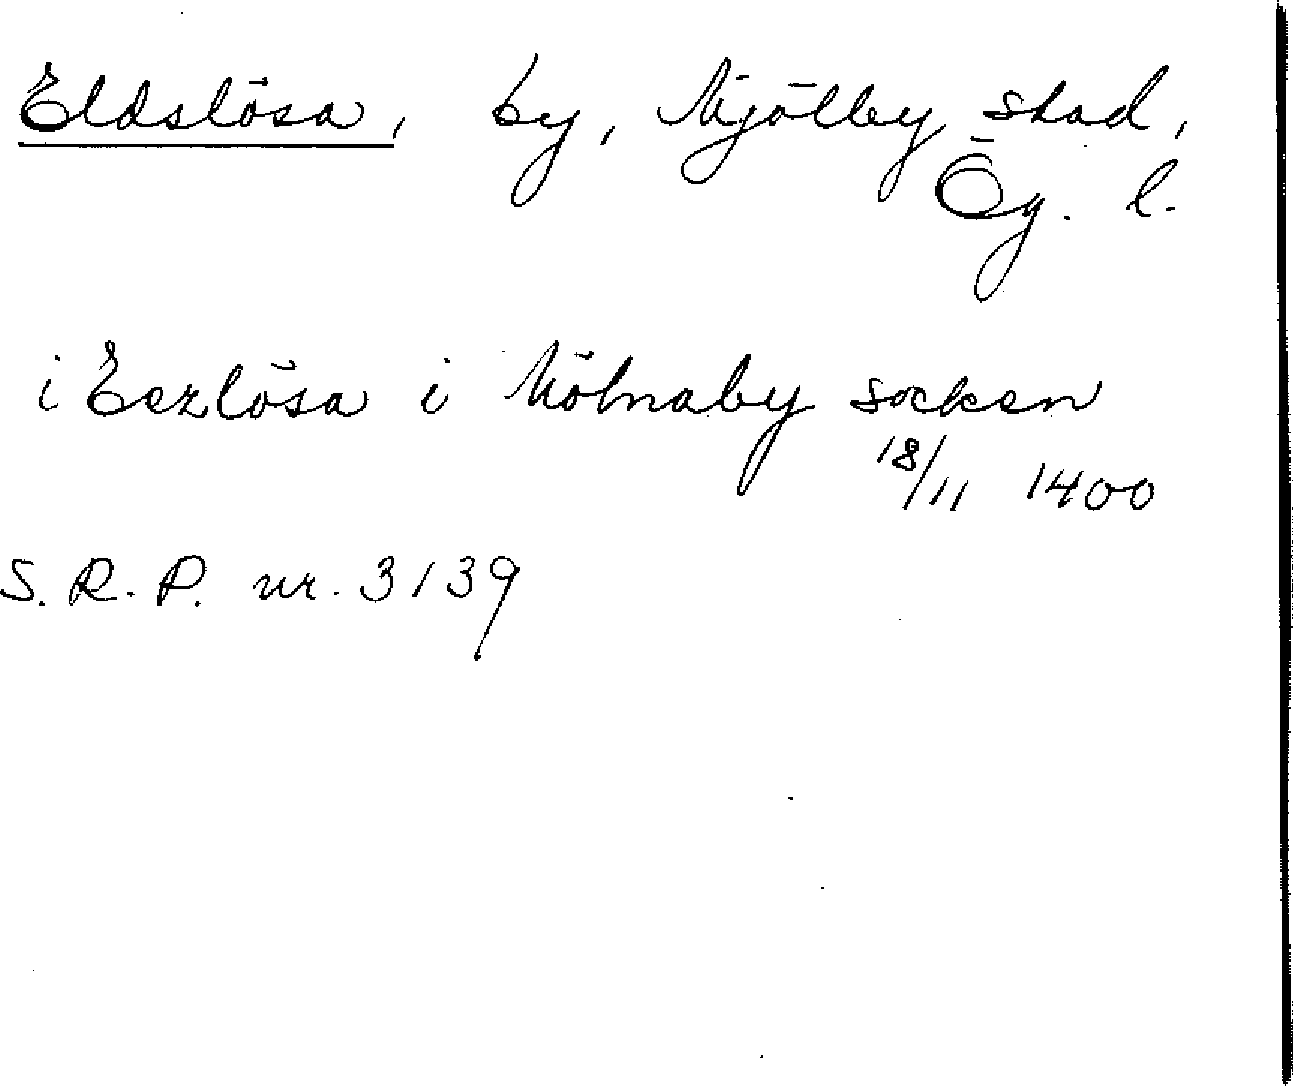 Eldslösa, by, Mjölby stad,
Ög. l.
i Eezlösa i Mölnaby socken
18/11 1400
S. R. P. nr. 3139